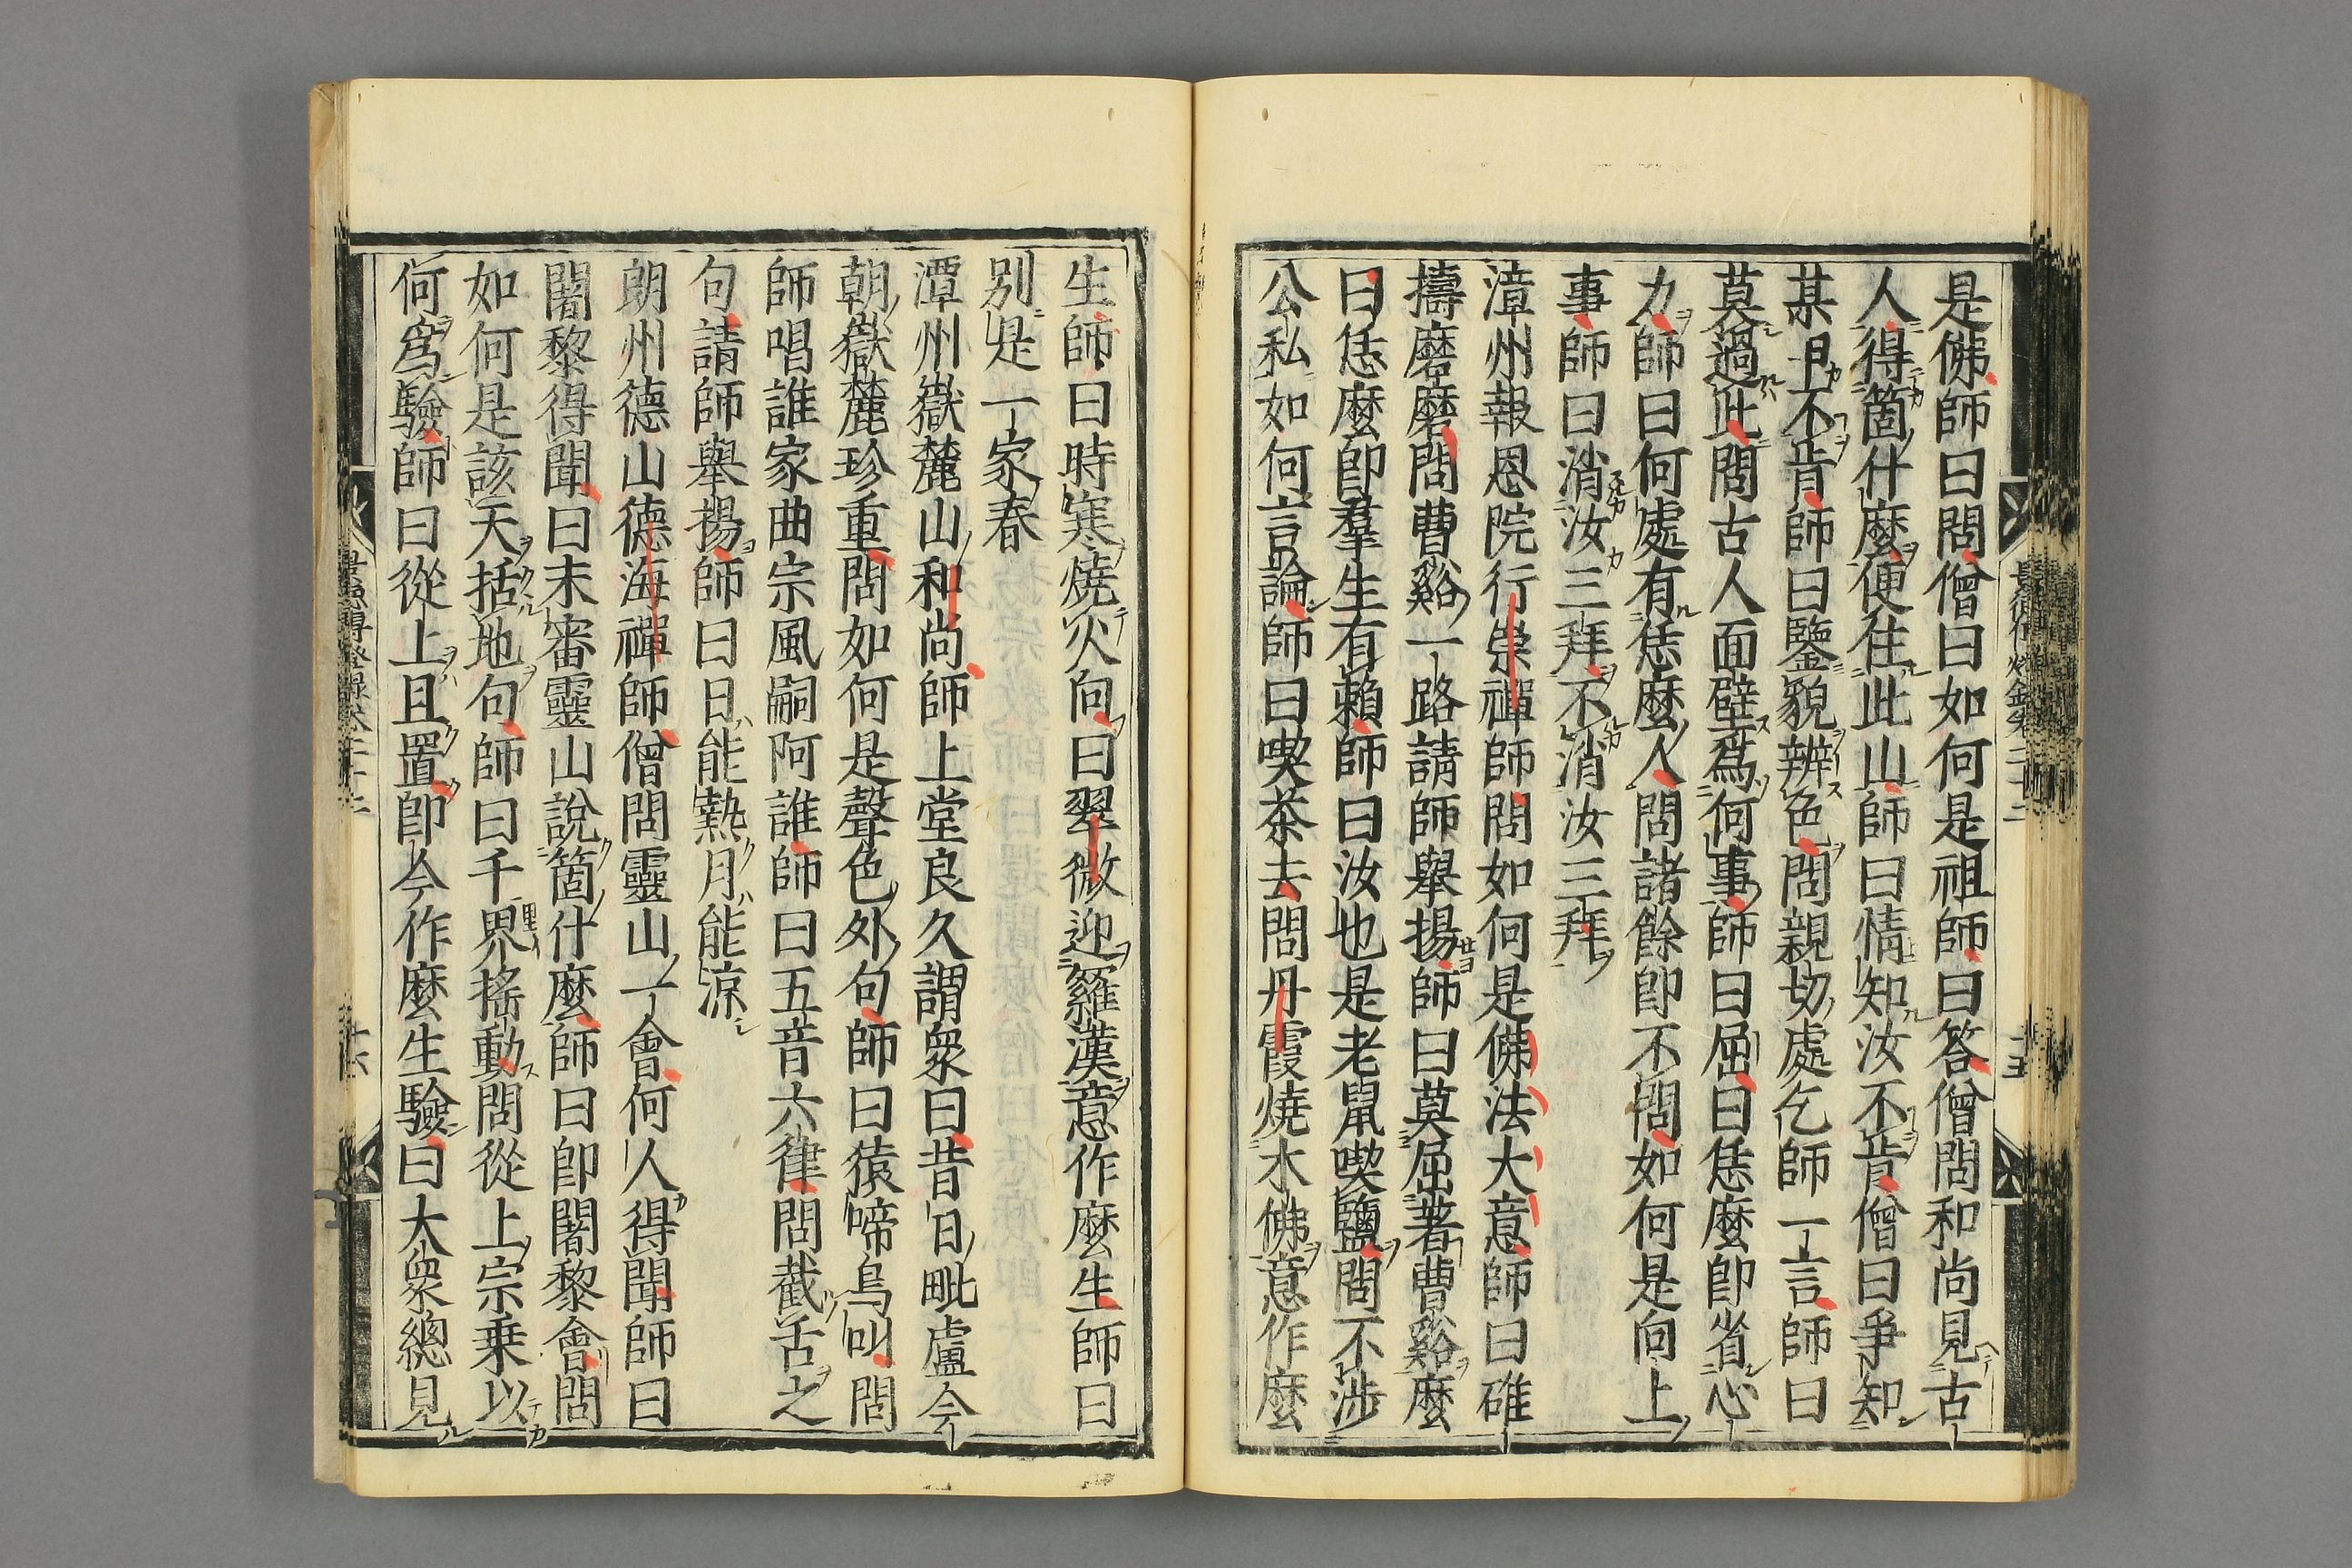 是佛師曰問僧曰如何是祖師曰答僧問和尚見古
人得箇什麼便住此山師曰情知汝不肯僧曰爭知
某甲不肯師曰鑒貌辨色問親切處乞師一言師曰
莫過此問古人面壁爲何事師曰屈曰恁麼即省心
力師曰何處有恁麼人問諸餘即不問如何是向上
事師曰消汝三拜不消汝三拜
漳州報恩院行崇禪師問如何是佛法大意師曰碓
擣磨磨問曹谿一路請師舉揚師曰莫屈著曹谿麼
曰恁麼即羣生有賴師曰汝也是老鼠喫鹽問不涉
公私如何言論師曰喫茶去問丹霞燒木佛意作麼
生師曰時寒燒火向曰翠微迎羅漢意作麼生師曰
別是一家春
潭州嶽麓山和尚師上堂良久謂衆曰昔日毗盧今
朝嶽麓珍重問如何是聲色外句師曰猿啼鳥叫問
師唱誰家曲宗風嗣阿誰師曰五音六律問截舌之
句請師舉揚師曰日能熱月能涼
朗州德山德海禪師僧問靈山一會何人得聞師曰
闍黎得聞曰未審靈山說箇什麼師曰即闍黎會問
如何是該天括地句師曰千界搖動問從上宗乘以
何爲驗師曰從上且置即今作麼生驗曰大衆總見